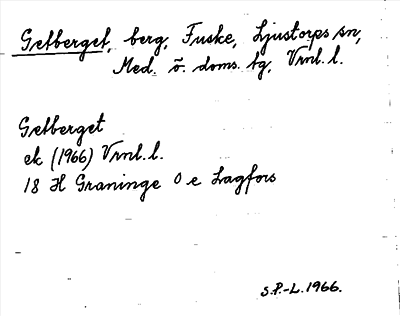 Getberget, berg, Fuske, Ljustorps sn,
Med. ö. doms. tg, Vrnl. l.
Getberget
ek (1966) Vrnl. l.
18 H Graninge O e Lagfors
S.P.-L. 1966.